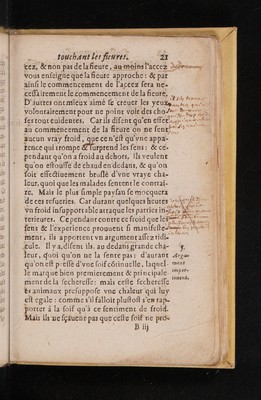 touchant les fieures. 21
ceez, & non pas de la fieure, au moins l'accez
vous enseigne que la fieure approche: & par
ainsi le commencement de l'accez sera ne-
cessairement le commencement de la fieure.
D'autres ont mieux aimé se creuer les yeux
volontairement pour ne point voir des cho-
ses tout euidentes. Car ils disent qu'en effet
au commencement de la fieure on ne sent
aucun vray froid, que ce n'est qu'vne appa-
rence qui trompe & surprend les sens: & ce-
pendant qu'on a froid au dehors, ils veulent
qu'on estouffe de chaud en dedans, & qu'on
soit effectiuement bruslé d'vne vraye cha-
leur, quoi que les malades sentent le contrai-
re. Mais le plus simple paysan se mocquera
de ces resueries. Car durant quelques heures
vn froid insupportable attaque les parties in-
terieures. Cependant contre ce froid que les
sens & l'experience prouuent si manifeste-
ment, ils apportent vn argument assez ridi-
cule. Il y a, disent ils, au dedans grande cha-
leur, quoi qu'on ne la sente pas: d'autant
qu'on est pressé d'vne soif continuelle, laquel-
le marque bien premierement & principale-
ment de la secheresse: mais ceste secheresse
és animaux presuppose vne chaleur qui luy
est egale: comme s'il falloit plustost s'en rap-
porter à la soif qu'à ce sentiment de froid.
Mais ils ne sçauent pas que ceste soif ne pro-
B iij
5.
Argu-
ment
imper-
tinent.